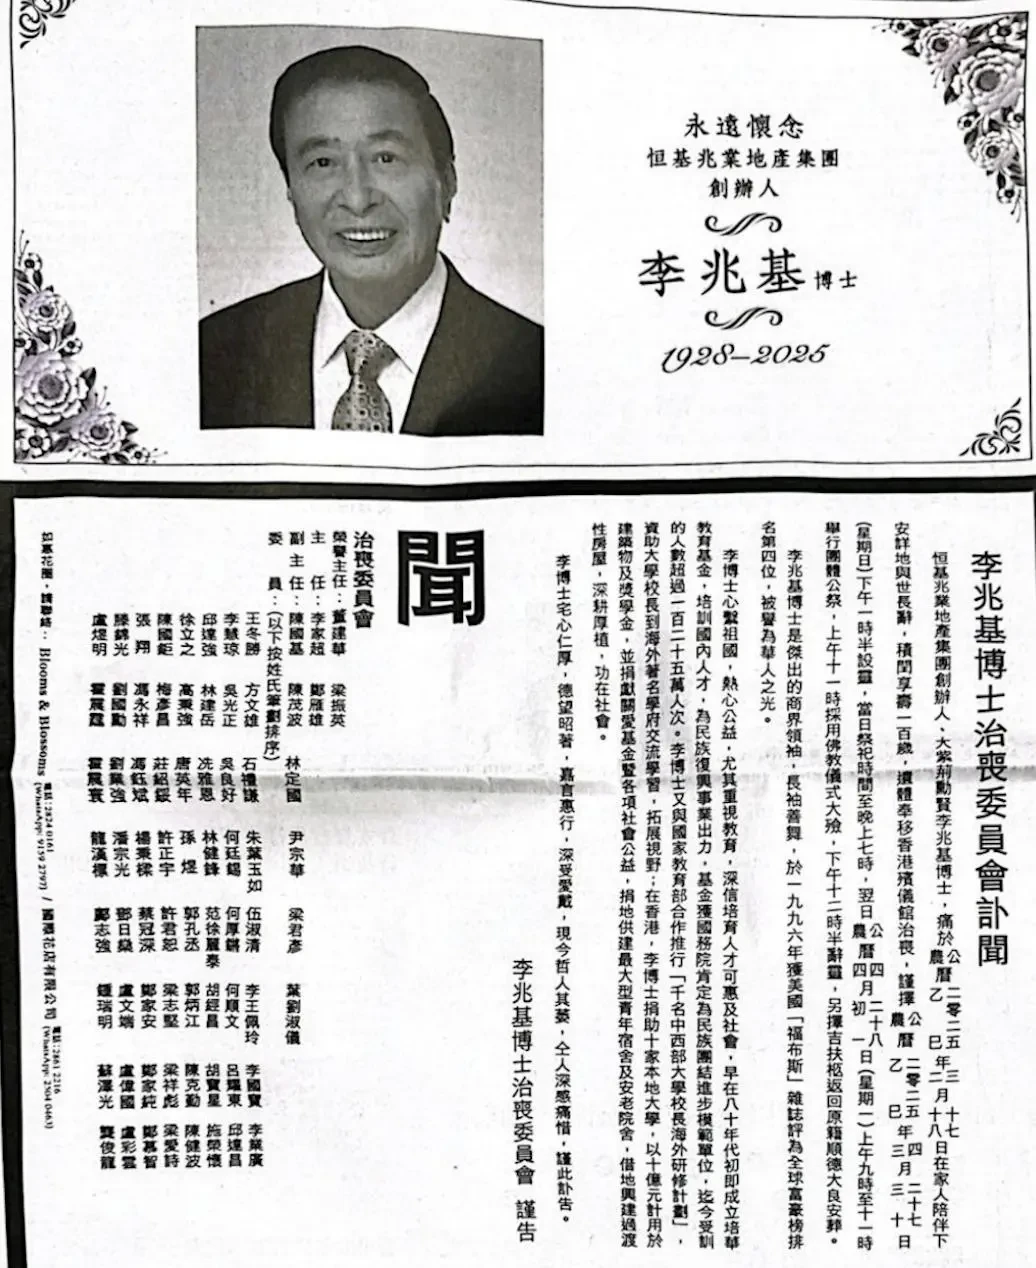 永遠懷念
恒基兆業地產集團
創辦人
李兆基博士
1928–2025
李兆基博士治喪委員會訃聞
恒基兆業地產集團創辦人、大紫荊勳賢李兆基博士，痛於公曆二零二五年三月十七日農曆乙巳年二月十八日在家人陪伴下
安詳地與世長辭，積閏享壽一百歲，遺體奉移香港殯儀館治喪，謹擇公曆二零二五年四月二十七日農曆乙巳年三月三十日
(星期日)下午一時半設靈，當日祭祀時間至晚上七時，翌日公曆四月二十八日農曆四月初一日(星期一)上午九時至十一時
舉行團體公祭，上午十一時採用佛教儀式大殮，下午十二時半辭靈，另擇吉扶柩返回原籍順德大良安葬。
李兆基博士是傑出的商界領袖，長袖善舞，於一九九六年獲美國「福布斯」雜誌評為全球富豪榜排
名第四位，被譽為華人之光。
李博士心繫祖國，熱心公益，尤其重視教育，深信培育人才可惠及社會，早在八十年代初即成立培華
教育基金，培訓國內人才，為民族復興事業出力，基金獲國務院肯定為民族團結進步模範單位，迄今受訓
的人數超過一百二十五萬人次。李博士又與國家教育部合作推行「千名中西部大學校長海外研修計劃」，
資助大學校長到海外著名學府交流學習，拓展視野；在香港，李博士捐助十家本地大學，以十億元計用於
建築物及獎學金，並捐獻關愛基金暨各項社會公益，捐地供建最大型青年宿舍及安老院舍，借地興建過渡
性房屋，深耕厚植，功在社會。
李博士宅心仁厚，德望昭著，嘉言惠行，深受愛戴，現今哲人其萎，仝人深感痛惜，謹此訃告。
李兆基博士治喪委員會 謹告
聞
治喪委員會
榮譽主任：董建華 梁振英
主　任：李家超 鄭雁雄
副主任：陳國基 陳茂波 林定國 尹宗華 梁君彥 葉劉淑儀
委　員：(以下按姓氏筆劃排序)
王冬勝 方文雄 石禮謙 朱葉玉如 伍淑清 李王佩玲 李國寶 李業廣
李慧琼 吳光正 吳良好 何廷錫 何厚鏘 何順文 呂耀東 邱達昌
邱達強 林建岳 冼雅恩 林健鋒 范徐麗泰 胡經昌 胡寶星 施榮懷
徐立之 高秉強 唐英年 孫煜 郭孔丞 郭炳江 陳克勤 陳健波
陳國鉅 梅彥昌 莊紹綏 許正宇 許君恕 梁志堅 梁祥彪 梁愛詩
張翔 馮永祥 馮鈺斌 楊秉樑 蔡冠深 鄭家安 鄭家純 鄭慕智
滕錦光 劉國勳 劉業強 潘宗光 鄧日燊 盧文端 盧偉國 盧彩雲
盧煜明 霍震霆 霍震寰 龍漢標 鄺志強 鍾瑞明 蘇澤光 龔俊龍
如惠花圈，請聯絡： Blooms & Blossoms 電話：2824 0161 (WhatsApp: 9159 2797) / 國福花店有限公司 電話：2861 2216 (WhatsApp: 2504 0463)